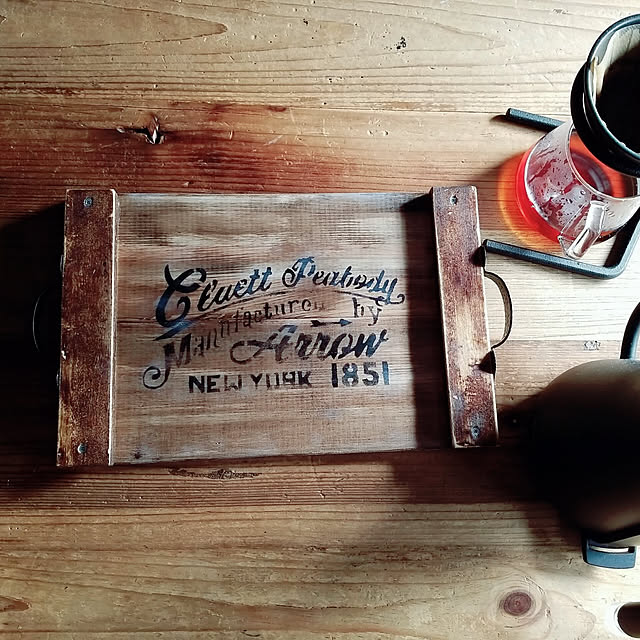 Cluett Peabody
Manufactured by
Arrow
NEW YORK 1851